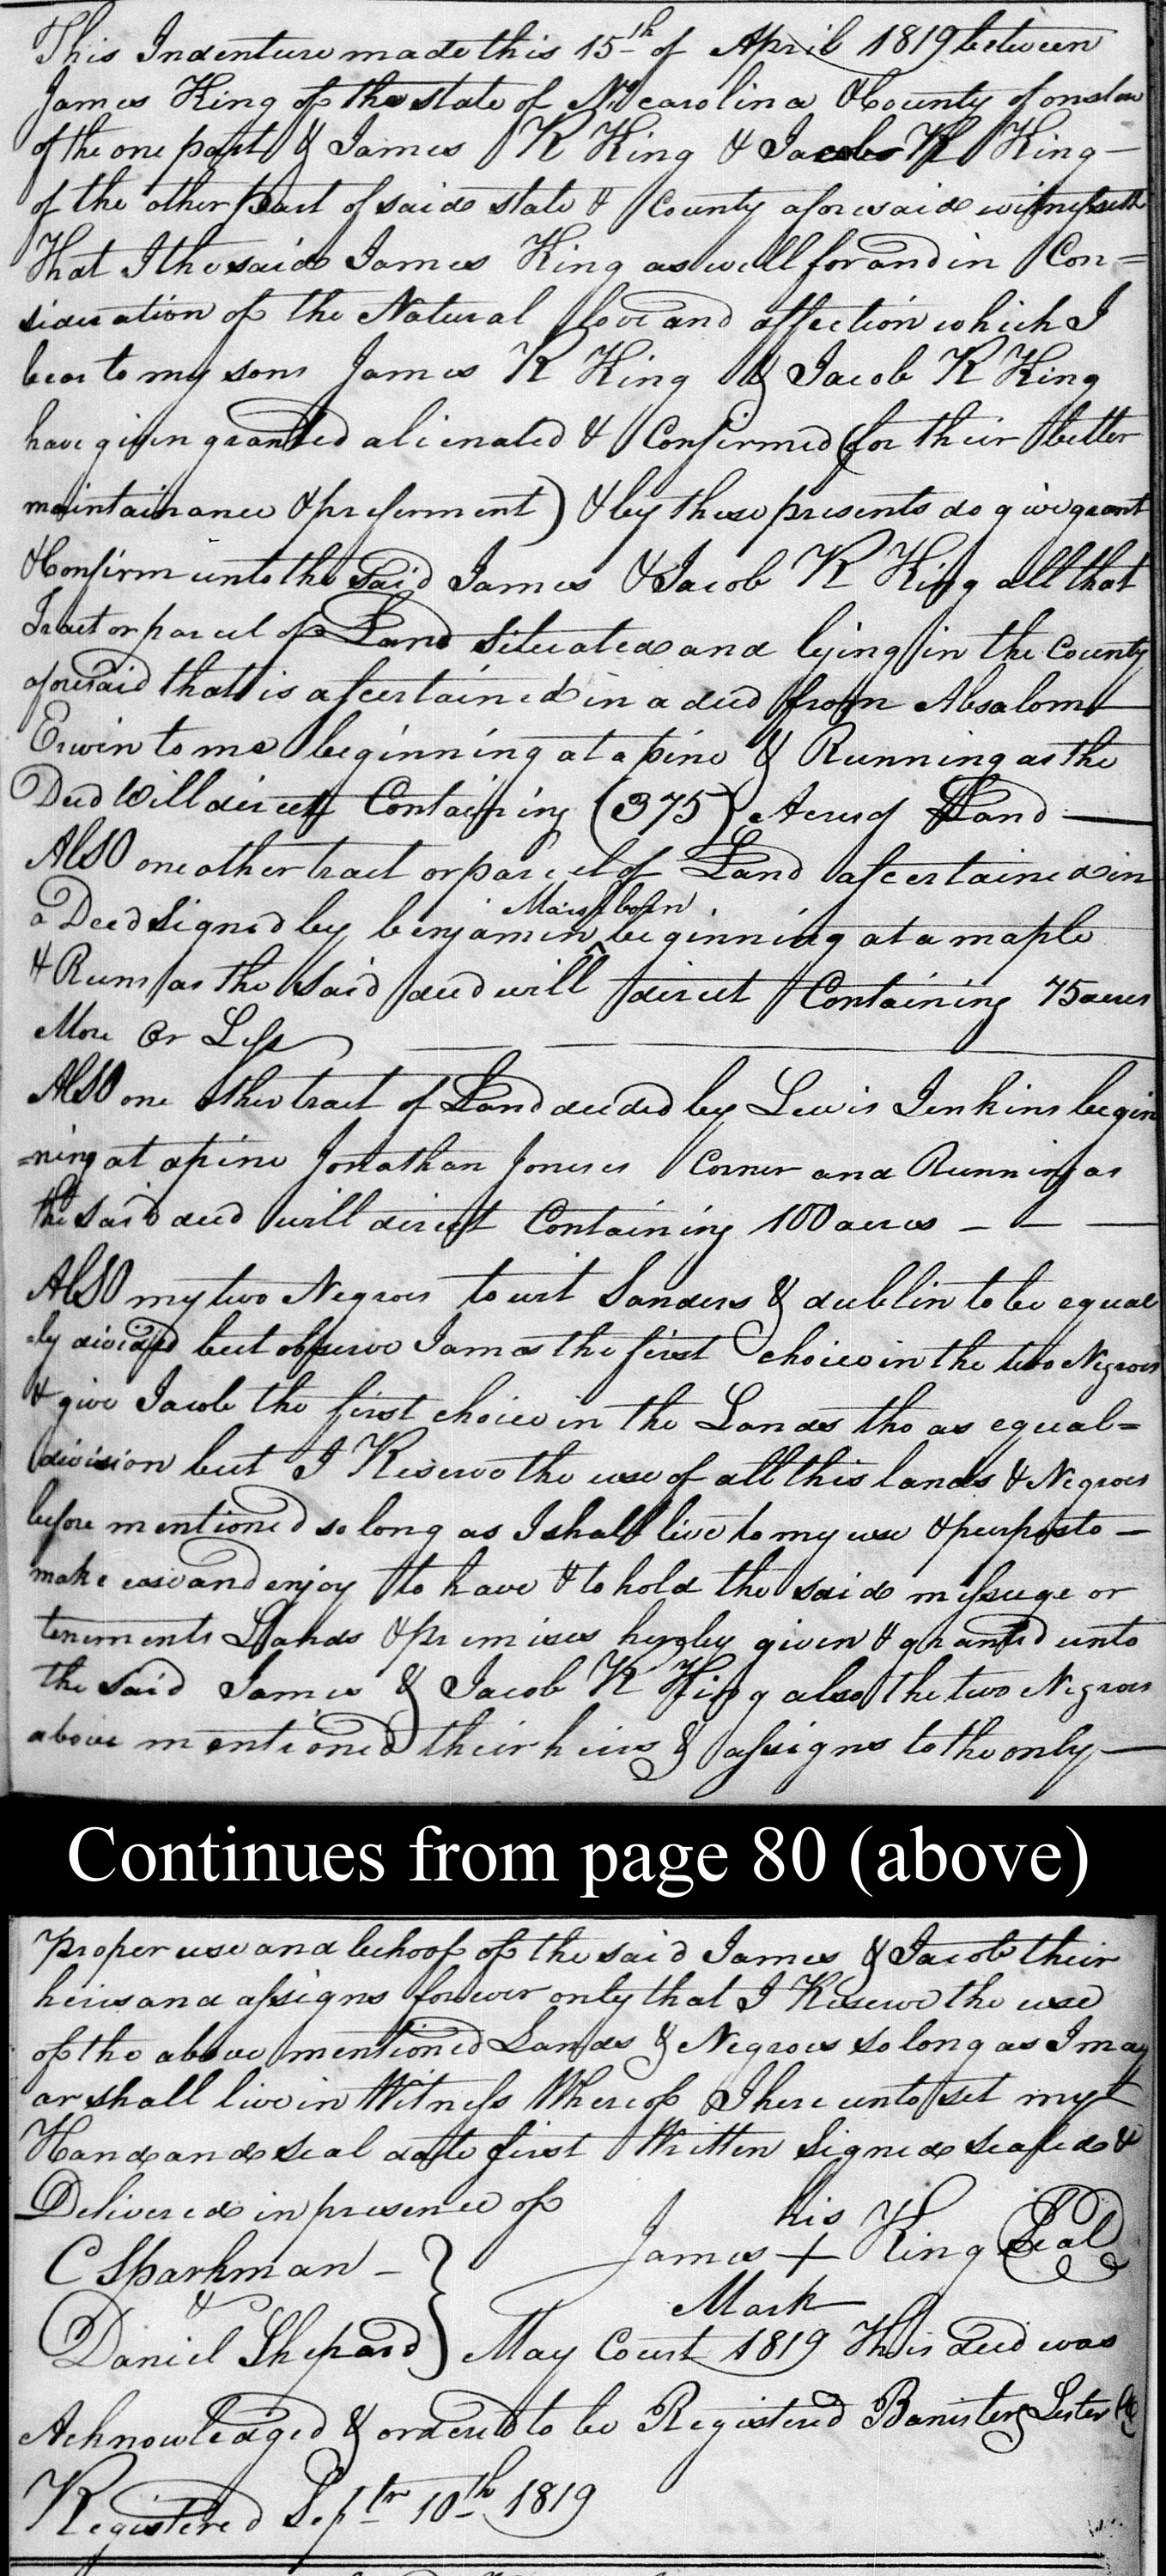 This Indenture made this 15th of April 1819 between
James King of the state of No carolina & County of onslow
of the one part & James R King & Jacob R King —
of the other part of said state & County aforesaid witnesseth
That I the said James King as well for and in Con=
sideration of the Natural love and affection which I
bear to my sons James R King & Jacob R King
have given granted alienated & Confirmed (for their better
maintainance & preferment) & by these presents do give grant
& Confirm unto the Said James & Jacob R King all that
Tract or parcel of Land Situated and lying in the County
aforesaid that is ascertained in a deed from Absalom
Erwin to me beginning at a pine & Running as the
Deed Will direct Containing (375) Acres of Land —
AlSO one other tract or parcel of Land ascertained in
a Deed Signed by benjamin Marshborn beginning at a maple
& Runs as the Said deed will direct Containing 75 acres
More Or Less
AlSO one other tract of Land deeded by Lewis Jenkins begin
=ning at a pine Jonathan Joneses Corner and Running as
the Said deed will direct Containing 100 acres — — —
AlSO my two Negroes to wit Sanders & dublin to be equal
=ly divided but observe James the first choice in the two Negroes
& give Jacob the first choice in the Lands tho as equal=
division but I Reserve the use of all this lands & Negroes
before mentioned so long as I shall live to my use & purpos to —
make use and enjoy to have & to hold the said messuge or
tenements Lands & premises hereby given & granted unto
the Said James & Jacob R King also the two Negroes
above mentioned their heirs & assigns to the only —
Continues from page 80 (above)
Proper use and behoof of the said James & Jacob their
heirs and assigns forever only that I Reserve the use
of the above mentioned Lands & Negroes so long as I may
or shall live in Witness Whereof I here unto set my
Hand and seal date first Written Signed sealed &
Delivered in presence of
his
James + King Seal
Mark
C Sparkman —
&
Daniel Shepard
May Court 1819 This deed was
Acknowledged & ordered to be Registered Banister Lester
Registered Septr 10th 1819